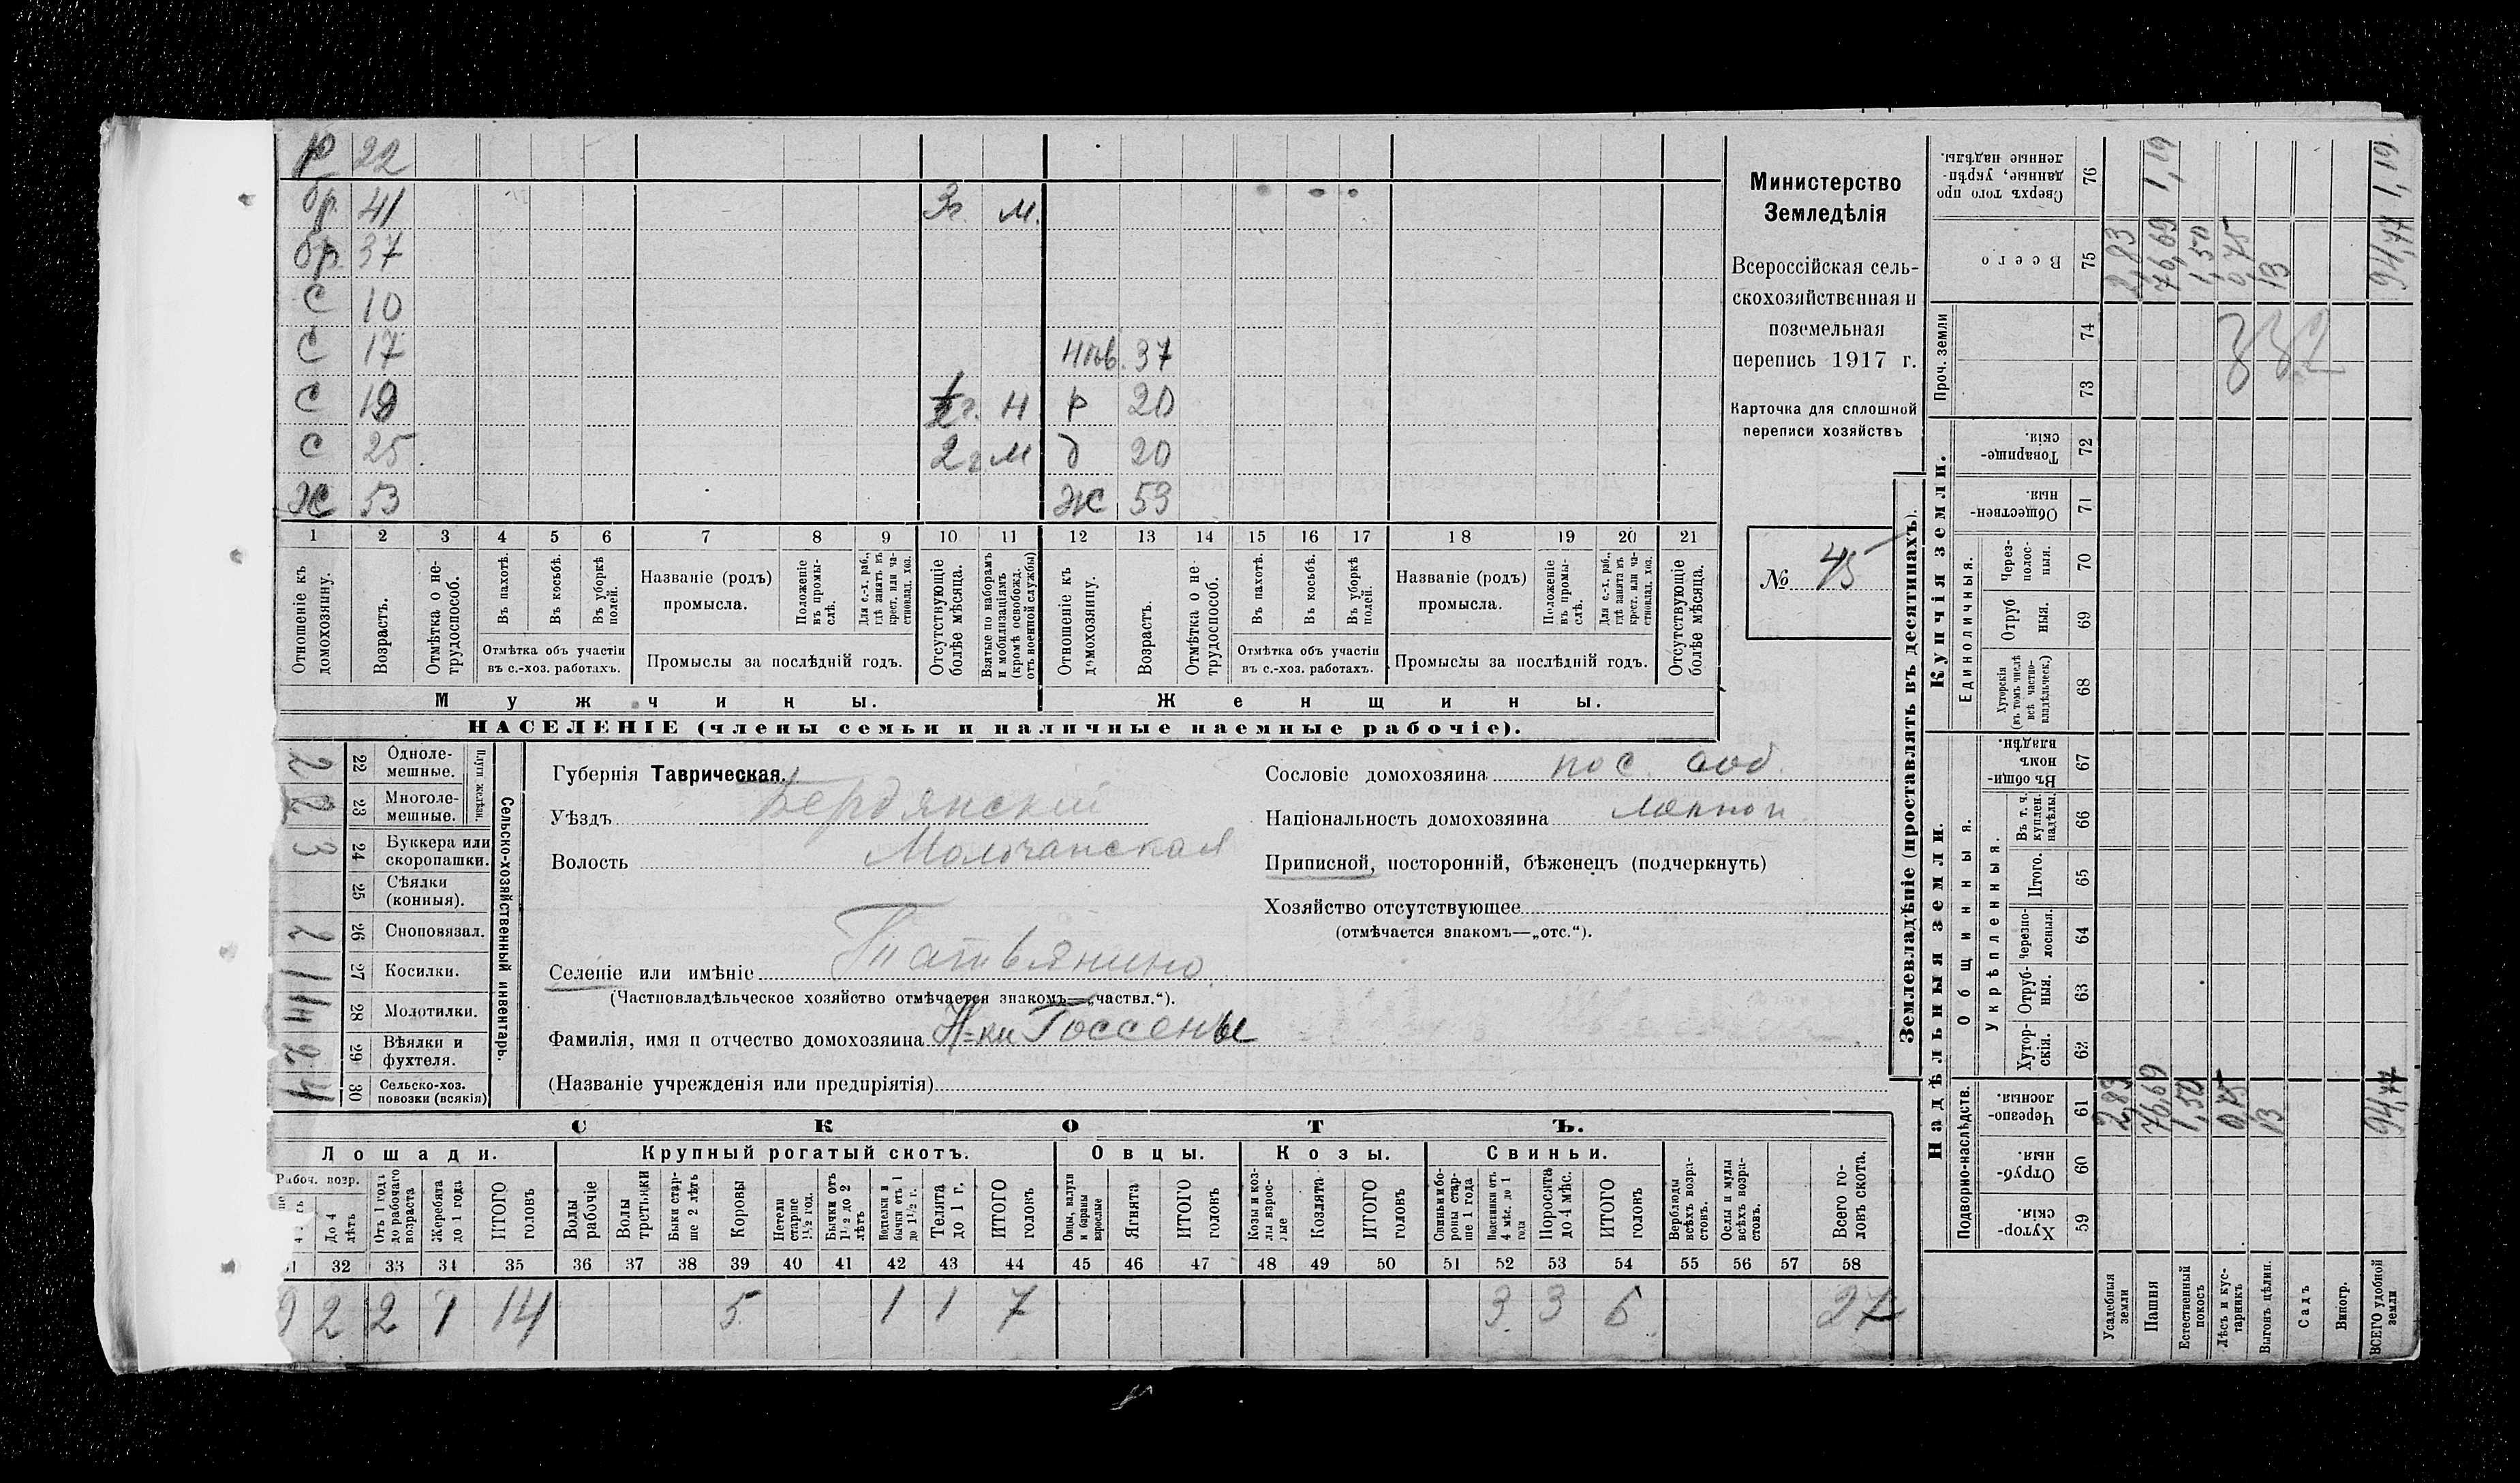 р 22
бр. 41 3г. м.
бр. 37
с 10
с 17 37
с 19 г. н р 20
с 25 2 г. м д 20
ж 53 ж 53
1 2 3 4 5 6 7 8 9 10 11 12 13 14 15 16 17 18 19 20 21
Отношеніе къ домохозяину.
Возрастъ.
Отмѣтка о нетрудоспособ.
Въ пахотѣ.
Въ косьбѣ.
Въ уборкѣ полей.
Отмѣтка объ участіи
въ с.-хоз. работахъ.
Названіе (родъ)
промысла.
Положеніе въ промыслѣ.
Для с.-х. раб., гдѣ занятъ въ крест. или частновлад. хоз.
Промыслы за послѣдній годъ.
Отсутствующіе болѣе мѣсяца.
Взятые по наборамъ и мобилизаціямъ (кромѣ освобожд. отъ военной службы)
Отношеніе къ домохозяину.
Возрастъ.
Отмѣтка о нетрудоспособ.
Въ пахотѣ.
Въ косьбѣ.
Въ уборкѣ полей.
Отмѣтка объ участіи
въ с.-хоз. работахъ.
Названіе (родъ)
промысла.
Положеніе въ промыслѣ.
Для с.-х. раб., гдѣ занята въ крест. или частновлад. хоз.
Промыслы за послѣдній годъ.
Отсутствующіе болѣе мѣсяца.
Мужчины. Женщины.
НАСЕЛЕНІЕ (члены семьи и наличные наемные рабочіе).
Министерство
Земледѣлія
Всероссійская сель-
скохозяйственная и
поземельная
перепись 1917 г.
Карточка для сплошной
переписи хозяйствъ
№ 45
Сельско-хозяйственный инвентарь.
Плуги желѣзн.
2 22 Однолемешные.
2 23 Многолемешные.
3 24 Буккера или скоропашки.
25 Сѣялки (конныя).
2 26 Сноповязал.
1 27 Косилки.
28 Молотилки.
2 29 Вѣялки и фухтеля.
4 30 Сельско-хоз. повозки (всякія)
Губернія Таврическая.
Уѣздъ Бердянскій
Волость Молочанская
Селеніе или имѣніе
(Частновладѣльческое хозяйство отмѣчается знакомъ—„частвл.“).
Фамилія, имя и отчество домохозяина Н-ки Госсены
(Названіе учрежденія или предпріятія)
Сословіе домохозяина пос. соб.
Національность домохозяина
Приписной, посторонній, бѣженецъ (подчеркнуть)
Хозяйство отсутствующее
(отмѣчается знакомъ—„отс.“).
СКОТЪ.
Лошади. Крупный рогатый скотъ. Овцы. Козы. Свиньи.
Рабоч. возр.
До 4 лѣтъ
Отъ 1 года до рабочаго возраста
Жеребята до 1 года
ИТОГО головъ
Волы рабочіе
Волы третьяки
Быки старше 2 лѣтъ
Коровы
Нетели старше 1½ год.
Бычки отъ 1½ до 2 лѣтъ
Подтелки и бычки отъ 1 до 1½ г.
Телята до 1 г.
ИТОГО головъ
Овцы, валухи и бараны взрослые
Ягнята
ИТОГО головъ
Козы и козлы взрослые
Козлята
ИТОГО головъ
Свиньи и бороны старше 1 года
Подсвинки отъ 4 мѣс. до 1 года
Поросята до 4 мѣс.
ИТОГО головъ
Верблюды всѣхъ возрастовъ.
Ослы и мулы всѣхъ возрастовъ.
Всего головъ скота.
32 33 34 35 36 37 38 39 40 41 42 43 44 45 46 47 48 49 50 51 52 53 54 55 56 57 58
2 2 1 14 5 1 1 7 3 3 6 27
Землевладѣніе (проставлять въ десятинахъ).
Надѣльныя земли. Купчія земли.
Проч. земли
Подворно-наслѣдств.
Общинныя.
Укрѣпленныя.
Единоличныя.
Сверхъ того проданные, укрѣпленные надѣлы. 76 1,19 1,19
Всего 75 2,83 76,69 1,50 0,75 13 94,77
74
73
332
Товарищескія. 72
Общественныя. 71
Черезполосныя. 70
Отрубныя. 69
Хуторскія (въ томъ числѣ всѣ частновладѣльческ.) 68
Въ общинномъ владѣн. 67
Въ т. ч. куплен. надѣлы. 66
Итого. 65
Черезполосныя. 64
Отрубныя. 63
Хуторскія. 62
Черезполосныя. 61 2,83 76,69 1,50 0,75 13 94,77
Отрубныя. 60
Хуторскія. 59
Усадебныя земли
Пашня
Естественный покосъ
Лѣсъ и кустарникъ
Выгонъ цѣлин.
Садъ
Виногр.
ВСЕГО удобной земли